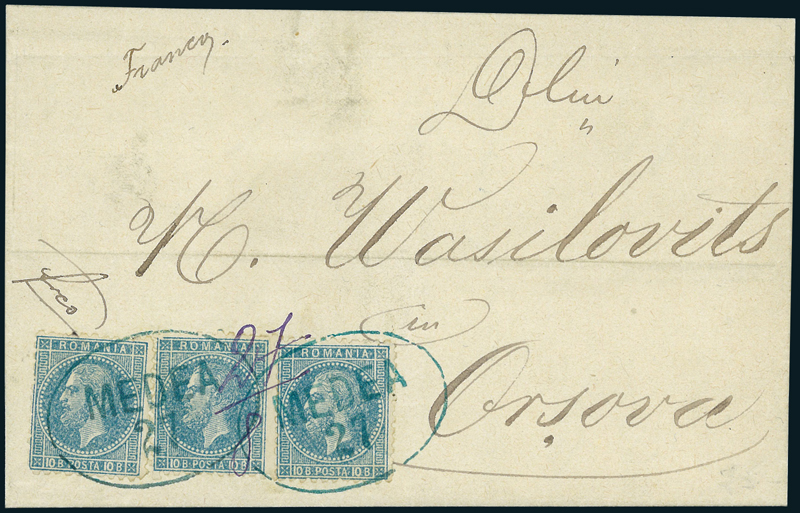 Franco.
D-lui
"
N. Wasilovits
in
Orșova
frco
ROMANIA
10 B. POSTA 10 B.
ROMANIA
10 B. POSTA 10 B.
ROMANIA
10 B. POSTA 10 B.
MEDEA
27
MEDEA
27
27
8